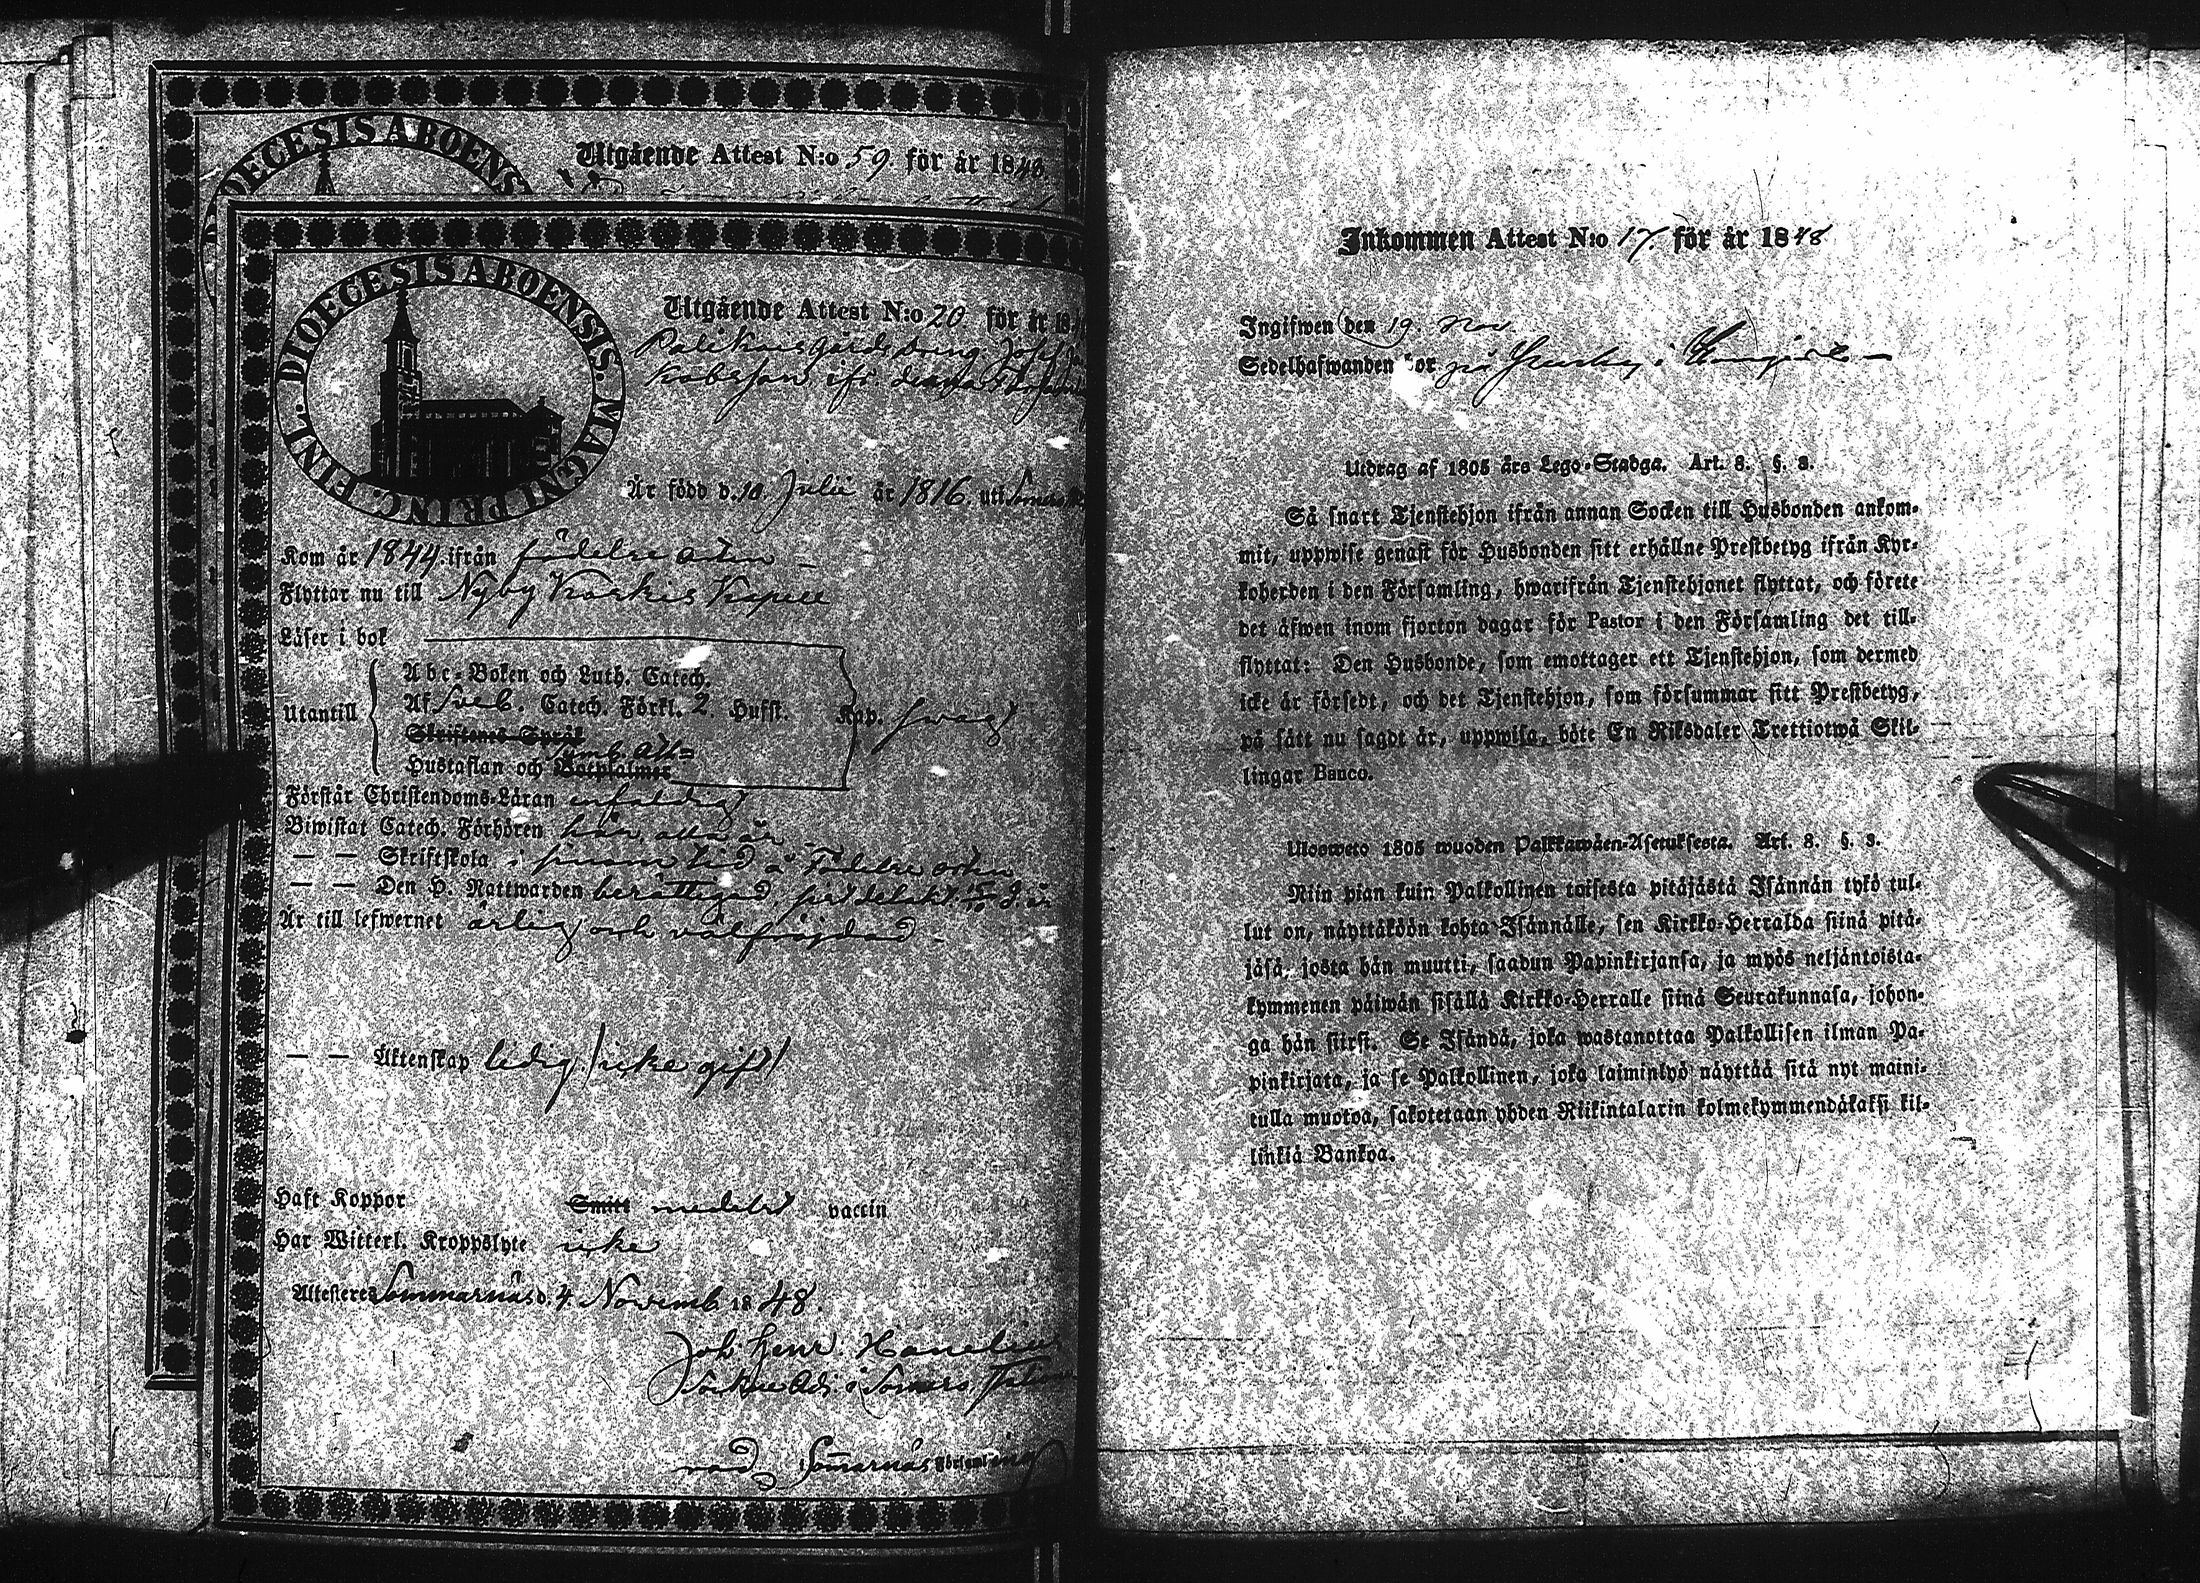 DIOECESIS ABOENS
Utgående Attest N:o 59. för år 1848.
DIOECESIS ABOENSIS. MAGNI PRINC. FINL.
Utgående Attest N:o 20. för år 18
drng. Josef
ifr.
Är född d. 10. Julii år 1816. uti Somero
Kom år 1844. ifrån födelse orten
Flyttar nu till Nyby Koskis Kapell
Läser i bok
Utantill
Abc-Boken och Luth. Catech.
Af Sveb. Catech. Förkl. 2. Hufst. Kap. svagt
Skriftenes Språk
Hustaflan och Botpsalmer
Förstår Christendoms-Läran enfaldigt
Biwistat Catech. Förhören här, alla år
— — Skriftskola i sinom tid å Födelse orten
— — Den H. Nattwarden berättigad, sist delakt.
Är till lefwernet ärlig och välfrejdad
— — Äktenskap ledig (icke gift)
Haft Koppor Smitt meddelad vaccin
Har Witterl. Kroppslyte icke
Attesteres Sommarnäs d. 4. Novemb. 1848.
Joh. Henr. Hanelius
Sockne Adj. i Somero,
i Somarnäs Församling
Inkommen Attest N:o 17. för år 1848
Ingifwen den 19. Nov.
Sedelhafwanden bor på
Utdrag af 1805 års Lego-Stadga. Art. 8. §. 3.
Så snart Tjenstehjon ifrån annan Socken till Husbonden ankom-
mit, uppwise genast för Husbonden sitt erhållne Prestbetyg ifrån Kyr-
koherden i den Församling, hwarifrån Tjenstehjonet flyttat, och förete
det äfwen inom fjorton dagar för Pastor i den Församling det till-
flyttat: Den Husbonde, som emottager ett Tjenstehjon, som dermed
icke är försedt, och det Tjenstehjon, som försummar sitt Prestbetyg,
på sätt nu sagdt är, uppwisa, böte En Riksdaler Trettiotwå Skil-
lingar Banco.
Uloswetо 1805 wuoden Palkkawäen-Asetuksesta. Art. 8. §. 3.
Niin pian kuin Palkollinen toisesta pitäjästä Isännän tykö tul-
lut on, näyttäköön kohta Isännälle, sen Kirkko-Herralda siinä pitä-
jäsä, josta hän muutti, saadun Papinkirjansa, ja myös neljäntoista-
kymmenen päiwän sisällä Kirkko-Herralle siinä Seurakunnasa, johon-
ga hän siirsi. Se Isändä, joka wastanottaa Palkollisen ilman Pa-
pinkirjata, ja se Palkollinen, joka laiminlyö näyttää sitä nyt maini-
tulla muotoa, sakotetaan yhden Riikintalarin kolmekymmendäkaksi kil-
linkiä Bankoa.